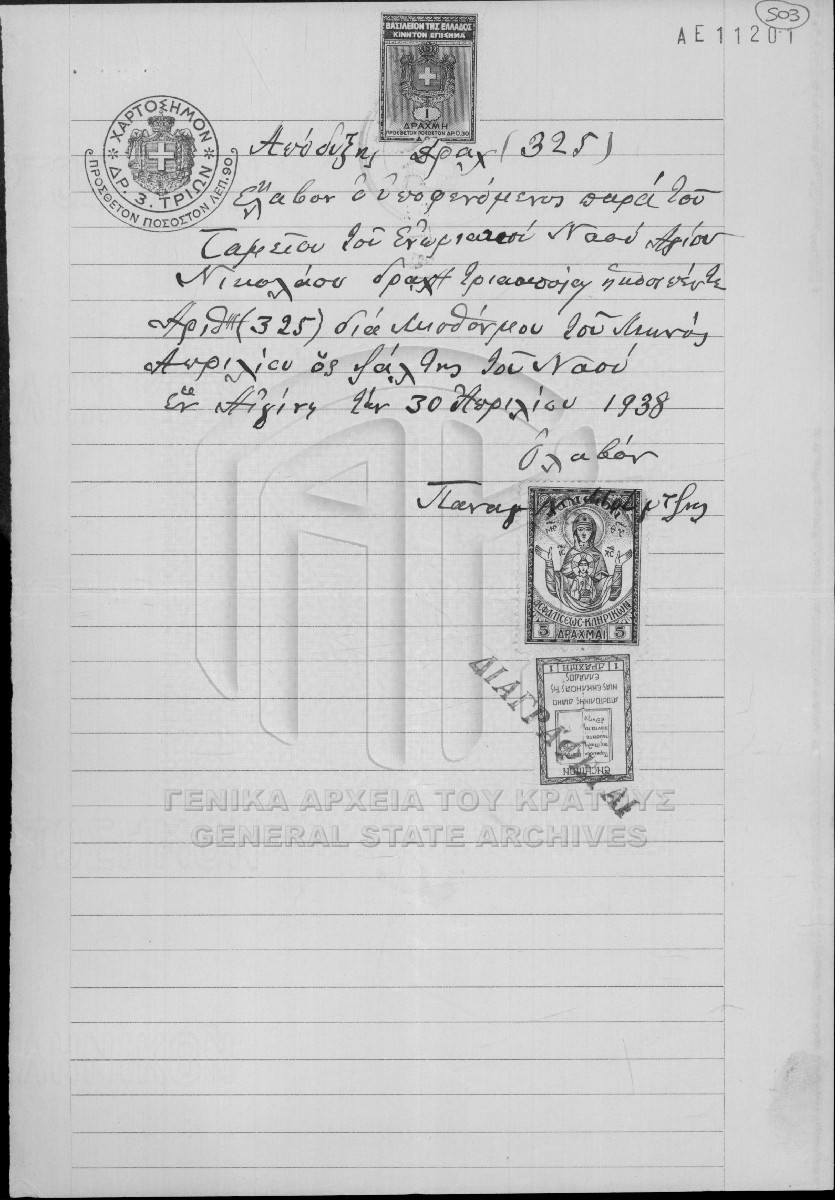 503
ΑΕ11201
ΒΑΣΙΛΕΙΟΝ ΤΗΣ ΕΛΛΑΔΟΣ
ΚΙΝΗΤΟΝ ΕΠΙΣΗΜΑ
1
ΔΡΑΧΜΗ
ΠΡΟΣΘΕΤΟΝ ΠΟΣΟΣΤΟΝ ΔΡ. 0,30
ΧΑΡΤΟΣΗΜΟΝ
ΔΡ. 3. ΤΡΙΩΝ
ΠΡΟΣΘΕΤΟΝ ΠΟΣΟΣΤΟΝ ΛΕΠ. 90
Απόδυξης Δραχ (325)
Ἔλαβον ὁ ὑποφενόμενος παρά τοῦ
Ταμείου τοῦ Ενωριακοῦ Ναοῦ Αγίου
Νικολάου δραχ τριακοσίας ηκοσιπέντε
Αριθ (325) διά Μισθόν μου τοῦ Μινός
Απριλίου ὅς ψάλτης τοῦ Ναοῦ
Ἐν Αἰγίνῃ τήν 30 Απριλίου 1938
Ὁ λαβόν
Παναγ
ΑΣΦΑΛΙΣΕΩΣ ΚΛΗΡΙΚΩΝ
5 ΔΡΑΧΜΑΙ 5
ΔΙΑΓΡΑΦΕΤΑΙ
1 ΔΡΑΧΜΗ 1
ΕΛΛΑΔΟΣ
ΑΠΟΣΤΟΛΙΚΗΣ ΔΙΑΚΟ
ΝΙΑΣ ΕΚΚΛΗΣΙΑΣ ΤΗΣ
ΕΝΣΗΜΟΝ
ΓΕΝΙΚΑ ΑΡΧΕΙΑ ΤΟΥ ΚΡΑΤΟΥΣ
GENERAL STATE ARCHIVES